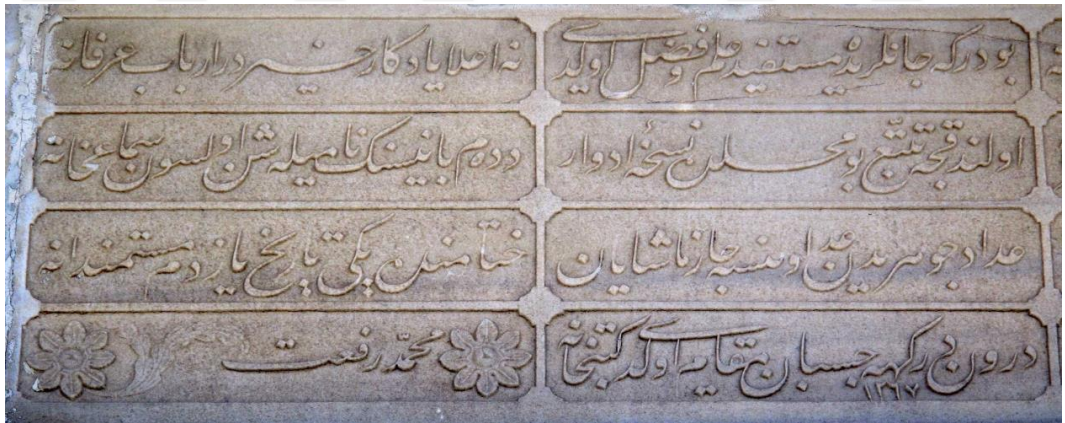 بودركه جانلری مستفید علم و فضل اولدی
نه اعلا یادكار خیردر ارباب عرفانه
اولندقجه تتبع بو محلدن نسخهٔ ادوار
ددەم بانیسنك نامیله شن اولسون سماعخانه
عداد جوهریدن عد اولنسه شایان
یكی تاریخ یازدم مستمندانه
درون دركهه چسبان مقام اولدی كتبخانه
١٢٦٧
محمد رفعت